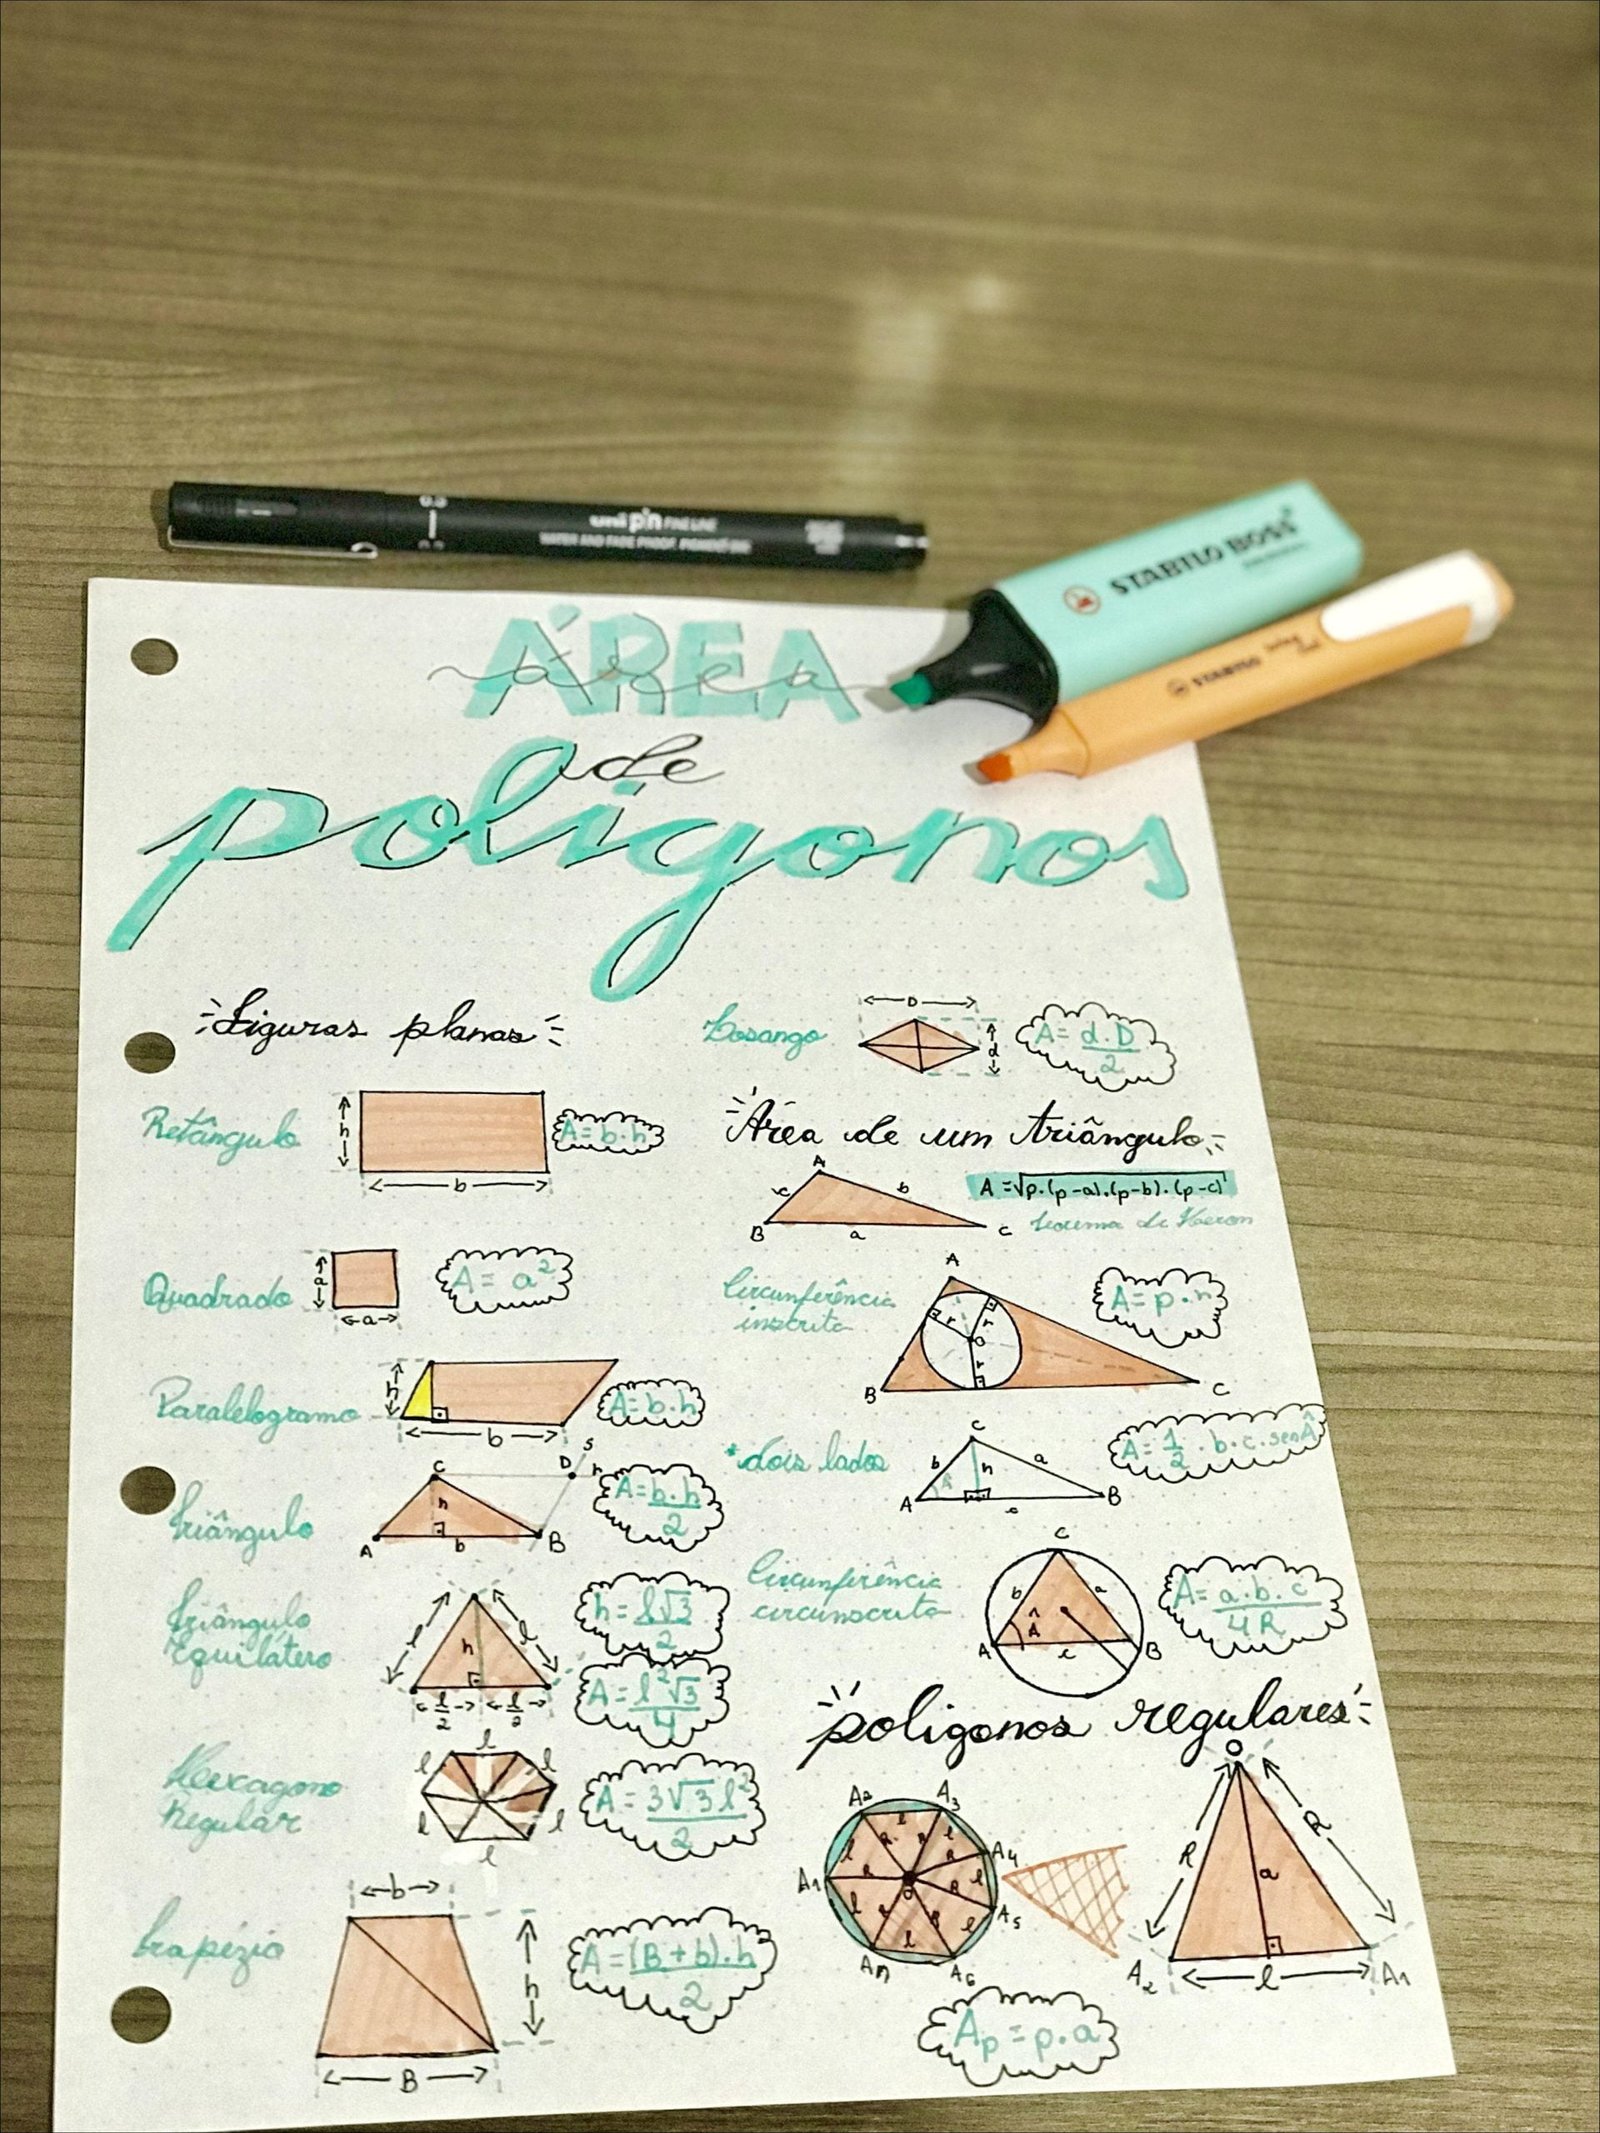 0.2
uni pin FINE LINE
WATER AND FADE PROOF, PIGMENT INK
STABILO BOSS
STABILO swing
ÁREA
área
de
poligonos
Figuras planas
Retângulo
h
b
A = b · h
Quadrado
a
a
A = a²
Paralelogramo
h
b
A = b · h
Triângulo
C
D
s
r
h
A
b
B
A = b · h
2
Triângulo
Equilátero
l
l
h
l/2
l/2
h = l√3
2
A = l²√3
4
Hexagono
Regular
l
l
l
l
l
l
A = 3√3 l²
2
trapézio
b
h
B
A = (B + b) · h
2
Losango
D
d
A = d · D
2
Área de um triângulo
A
c
b
B
a
C
A = √p · (p - a) · (p - b) · (p - c)
teorema de Heron
Circunferência
inscrita
A
r
r
O
r
B
C
A = p · r
* dois lados
C
b
h
a
A
c
B
A = 1/2 · b · c · sen Â
Circunferência
circunscrita
C
b
a
Â
A
c
B
A = a · b · c
4R
poligonos regulares
A2
A3
A4
A5
A6
An
A1
l
l
l
l
l
l
l
R
R
R
R
R
R
R
O
O
R
R
a
A2
l
A1
Ap = p · a